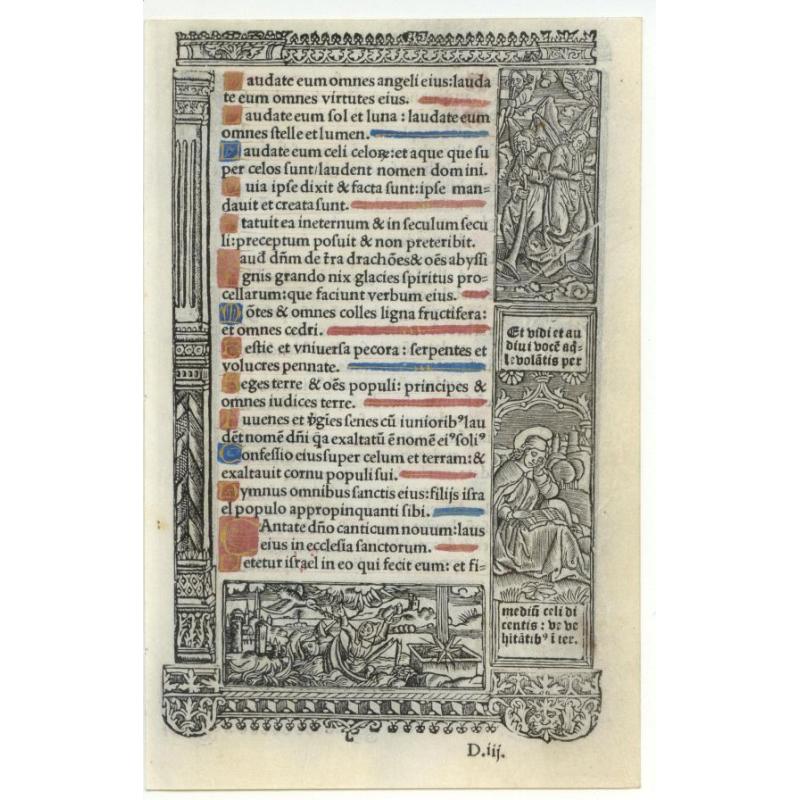 Laudate eum omnes angeli eius:lauda
te eum omnes virtutes eius.
Laudate eum sol et luna : laudate eum
omnes stelle et lumen.
Laudate eum celi celoꝝ:et aque que su
per celos sunt/laudent nomen domini.
Quia ipse dixit & facta sunt:ipse man=
dauit et creata sunt.
Statuit ea ineternum & in seculum secu
li:preceptum posuit & non preteribit.
Laud dñm de t̃ra drachões& oẽs abyssi
Ignis grando nix glacies spiritus pro-
cellarum:que faciunt verbum eius.
Mõtes & omnes colles ligna fructifera:
et omnes cedri.
Bestie et vniuersa pecora : serpentes et
volucres pennate.
Reges terre & oẽs populi: principes &
omnes iudices terre.
Iuuenes et ṽgĩes senes cũ iuniorib⁹ lau
dẽt nomẽ dñi q̃a exaltatũ ẽ nomẽ ei⁹ soli⁹
Confessio eius super celum et terram:&
exaltauit cornu populi sui.
Hymnus omnibus sanctis eius:filijs isra
el populo appropinquanti sibi.
CAntate dño canticum nouum:laus
eius in ecclesia sanctorum.
Letetur israel in eo qui fecit eum: et fi-
Et vidi et au
diui vocẽ aq̃-
le volãtis per
mediũ celi di
centis : ve ve
hitãtib⁹ ĩ ter.
D.iij.